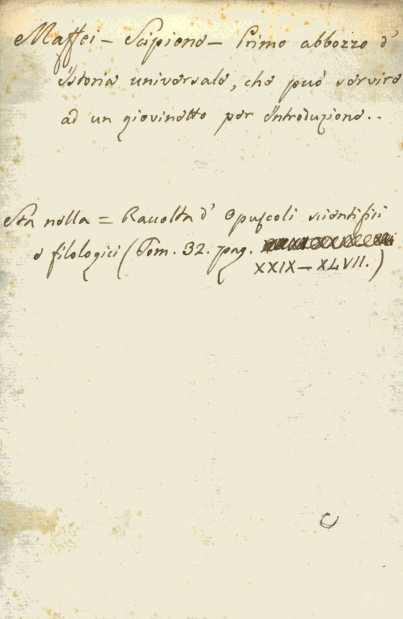 Maffei – Scipione – Primo abbozzo d'
Istoria universale, che può servire
ad un giovinetto per Introduzione..
Sta nella = Raccolta d' Opuscoli scientifici
e filologici (Tom. 32. pag.
XXIX – XLVII.)